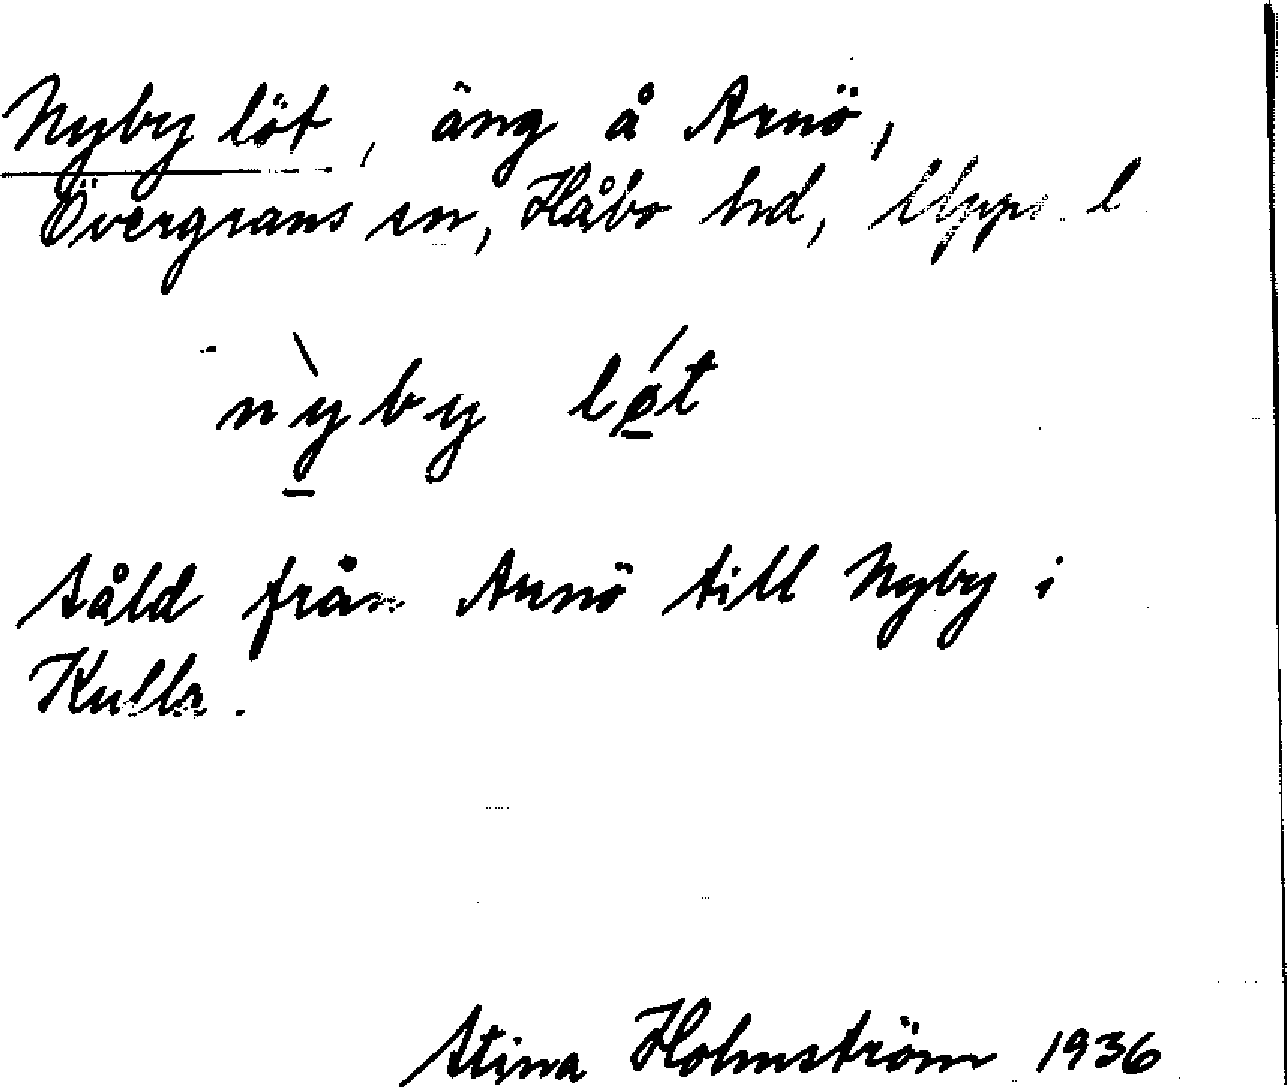 Nyby löt, äng å Arnö,
Övergrans sn, Håbo hd, Upps. l
nỳby lǿt
Såld från Arnö till Nyby i
Kulla.
Stina Holmström 1936